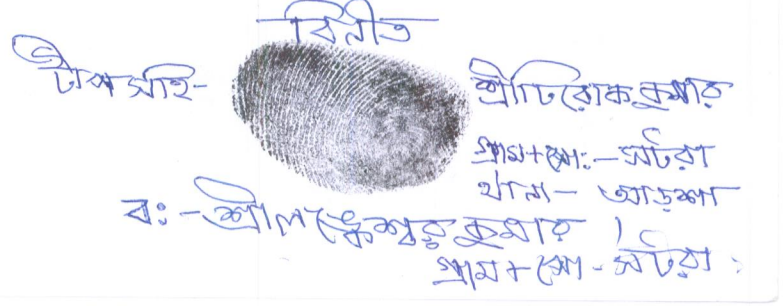 বিনীত
টীপ সহি- শ্রী টিরোক কুমার
গ্রাম+পো:- সটরা
থানা- আড়শা
ব:- শ্রীলঙ্কেশ্বর কুমার।
গ্রাম+পো- সটরা